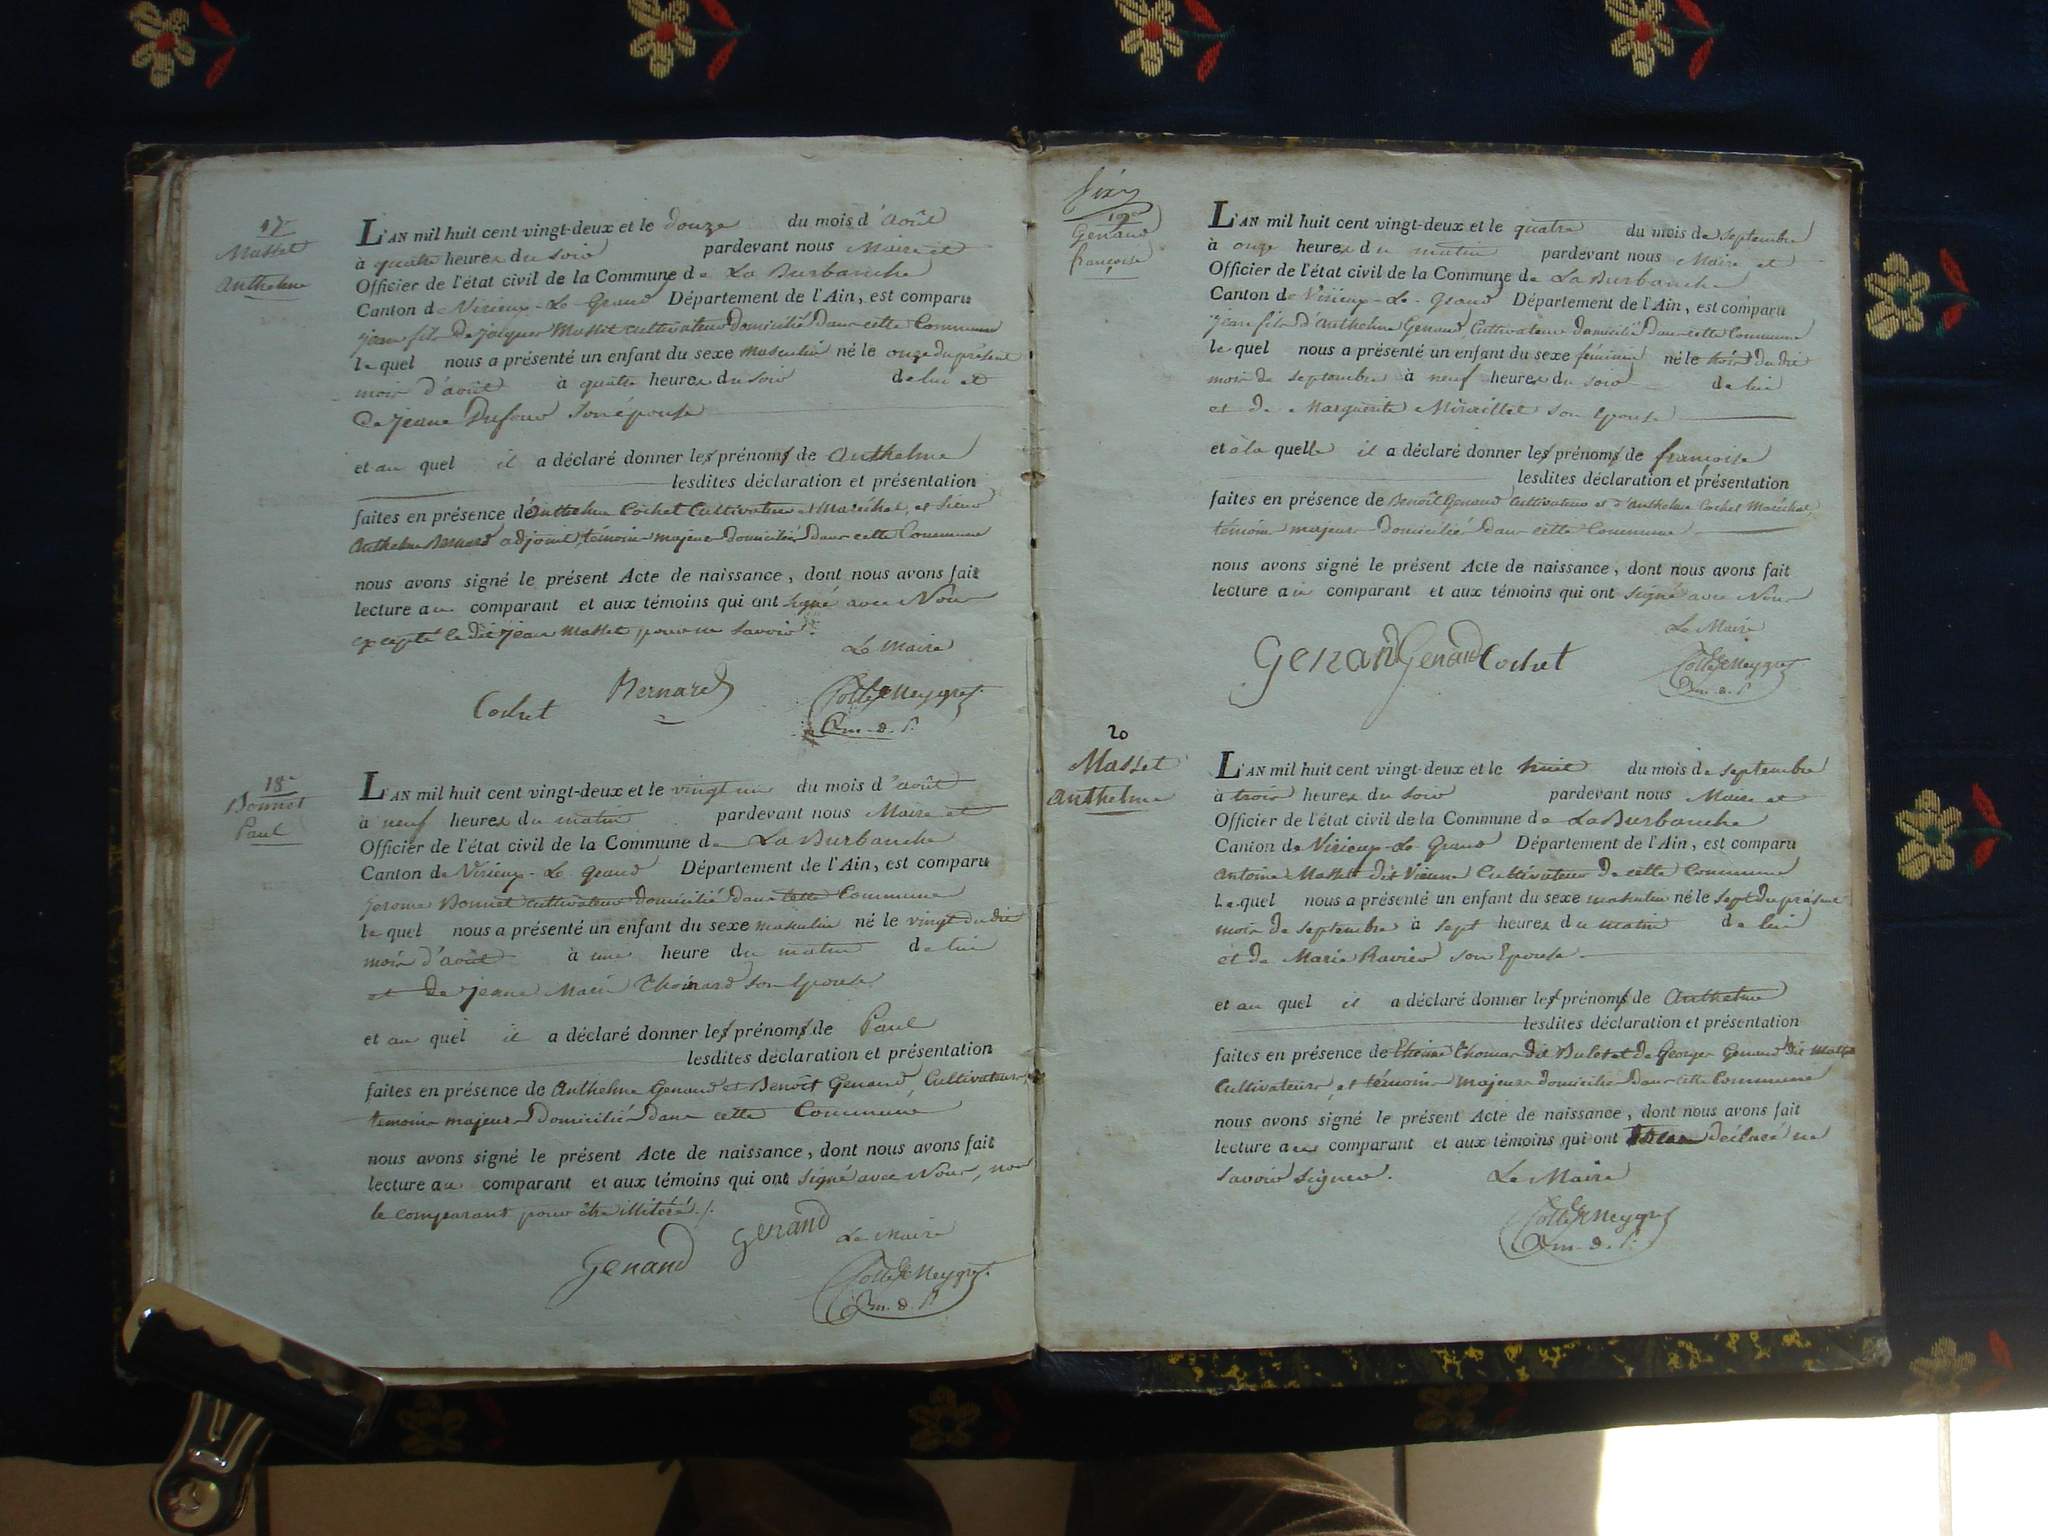 17
Masset
Anthelme
L'AN mil huit cent vingt-deux et le douze du mois d'août
à quatre heures du soir pardevant nous Maire et
Officier de l'état civil de la Commune de La Burbanche
Canton de Virieux-Le-Grand Département de l'Ain, est comparu
jean fils de jacques Masset cultivateur domicilié dans cette Commune
le quel nous a présenté un enfant du sexe masculin né le onze du présent
mois d'août à quatre heures du soir de lui et
de jeane Dufour son épouse
et au quel il a déclaré donner les prénoms de Anthelme
lesdites déclaration et présentation
faites en présence de Anthelme Cochet Cultivateur et Maréchal, et Sieur
Anthelme Bernard adjoint, témoins majeurs domiciliés dans cette Commune
nous avons signé le présent Acte de naissance, dont nous avons fait
lecture au comparant et aux témoins qui ont signé avec Nous
excepté le dit jean Masset, pour ne savoir.
Le Maire
Cochet Bernard
18e
Bonnet
Paul
L'AN mil huit cent vingt-deux et le vingt un du mois d'août
à neuf heures du matin pardevant nous Maire et
Officier de l'état civil de la Commune de La Burbanche
Canton de Virieux-Le Grand Département de l'Ain, est comparu
jerome Bonnet cultivateur domicilié dans cette Commune
le quel nous a présenté un enfant du sexe masculin né le vingt du dit
mois d'août à une heure du matin de lui
et de jeane Marie Thoinard son épouse
et au quel il a déclaré donner les prénoms de Paul
lesdites déclaration et présentation
faites en présence de Anthelme Genand et Benoît Genand Cultivateurs,
temoins majeurs Domiciliés dans cette Commune
nous avons signé le présent Acte de naissance, dont nous avons fait
lecture au comparant et aux témoins qui ont signé avec Nous, non
le comparant pour être illitéré./.
Genand Genand Le Maire
19e
Genand
françoise
L'AN mil huit cent vingt-deux et le quatre du mois de septembre
à onze heures du matin pardevant nous Maire et
Officier de l'état civil de la Commune de La Burbanche
Canton de Virieux-Le-Grand Département de l'Ain, est comparu
jean fils d'Anthelme Genand, Cultivateur domicilié dans cette Commune
le quel nous a présenté un enfant du sexe féminin né le trois du dit
mois de septembre à neuf heures du soir de lui
et de Marguerite Miraillet son épouse
et à la quelle il a déclaré donner les prénoms de françoise
lesdites déclaration et présentation
faites en présence de Benoît Genand Cultivateur et d'Anthelme Cochet Maréchal,
témoins majeurs domiciliés dans cette Commune
nous avons signé le présent Acte de naissance, dont nous avons fait
lecture au comparant et aux témoins qui ont signé avec Nous
Le Maire
Genand Genand Cochet
20
Masset
Anthelme
L'AN mil huit cent vingt-deux et le huit du mois de septembre
à trois heures du soir pardevant nous Maire et
Officier de l'état civil de la Commune de La Burbanche
Canton de Virieux-Le-Grand Département de l'Ain, est comparu
Antoine Masset dit Vienne Cultivateur de cette Commune
le quel nous a présenté un enfant du sexe masculin né le sept du présent
mois de septembre à sept heures du matin de lui
et de Marie Ravier son Epouse
et au quel il a déclaré donner les prénoms de Anthelme
lesdites déclaration et présentation
faites en présence de Thomas dit Bulet et de Georges Genand dit
Cultivateurs, et témoins majeurs domiciliés dans cette Commune
nous avons signé le présent Acte de naissance, dont nous avons fait
lecture aux comparant et aux témoins qui ont déclaré ne
savoir signer. Le Maire